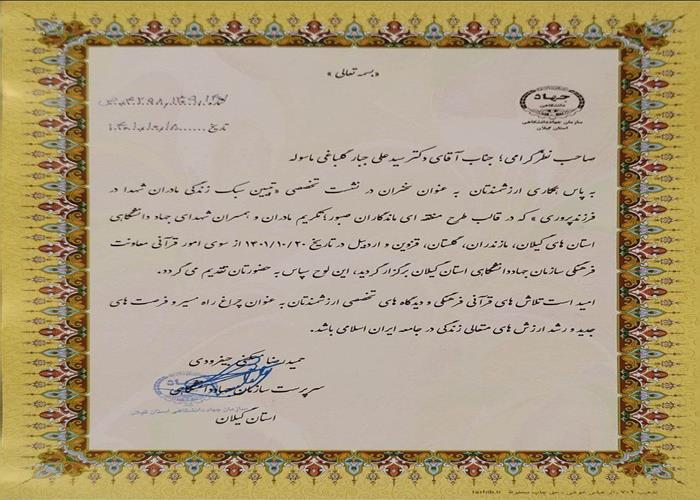 «بسمه تعالی»
جهاد
دانشگاهی
سازمان جهاددانشگاهی
استان گیلان
تاریخ
صاحب نظر گرامی؛ جناب آقای دکتر سیدعلی جبار گلباغی ماسوله
به پاس همکاری ارزشمندتان به عنوان سخنران در نشست تخصصی «تبیین سبک زندگی مادران شهدا در
فرزندپروری» که در قالب طرح منطقه ای ماندگاران صبور؛ تکریم مادران و همسران شهدای جهاد دانشگاهی
استان های گیلان، مازندران، گلستان، قزوین و اردبیل در تاریخ ۱۴۰۱/۱۰/۲۰ از سوی امور قرآنی معاونت
فرهنگی سازمان جهاددانشگاهی استان گیلان برگزار گردید، این لوح سپاس به حضورتان تقدیم می گردد.
امید است تلاش های قرآنی فرهنگی و دیدگاه های تخصصی ارزشمندتان به عنوان چراغ راه مسیر و فرصت های
جدید و رشد ارزش های متعالی زندگی در جامعه ایران اسلامی باشد.
حمیدرضا
سرپرست سازمان جهاددانشگاهی
استان گیلان
سازمان جهاد دانشگاهی استان گیلان